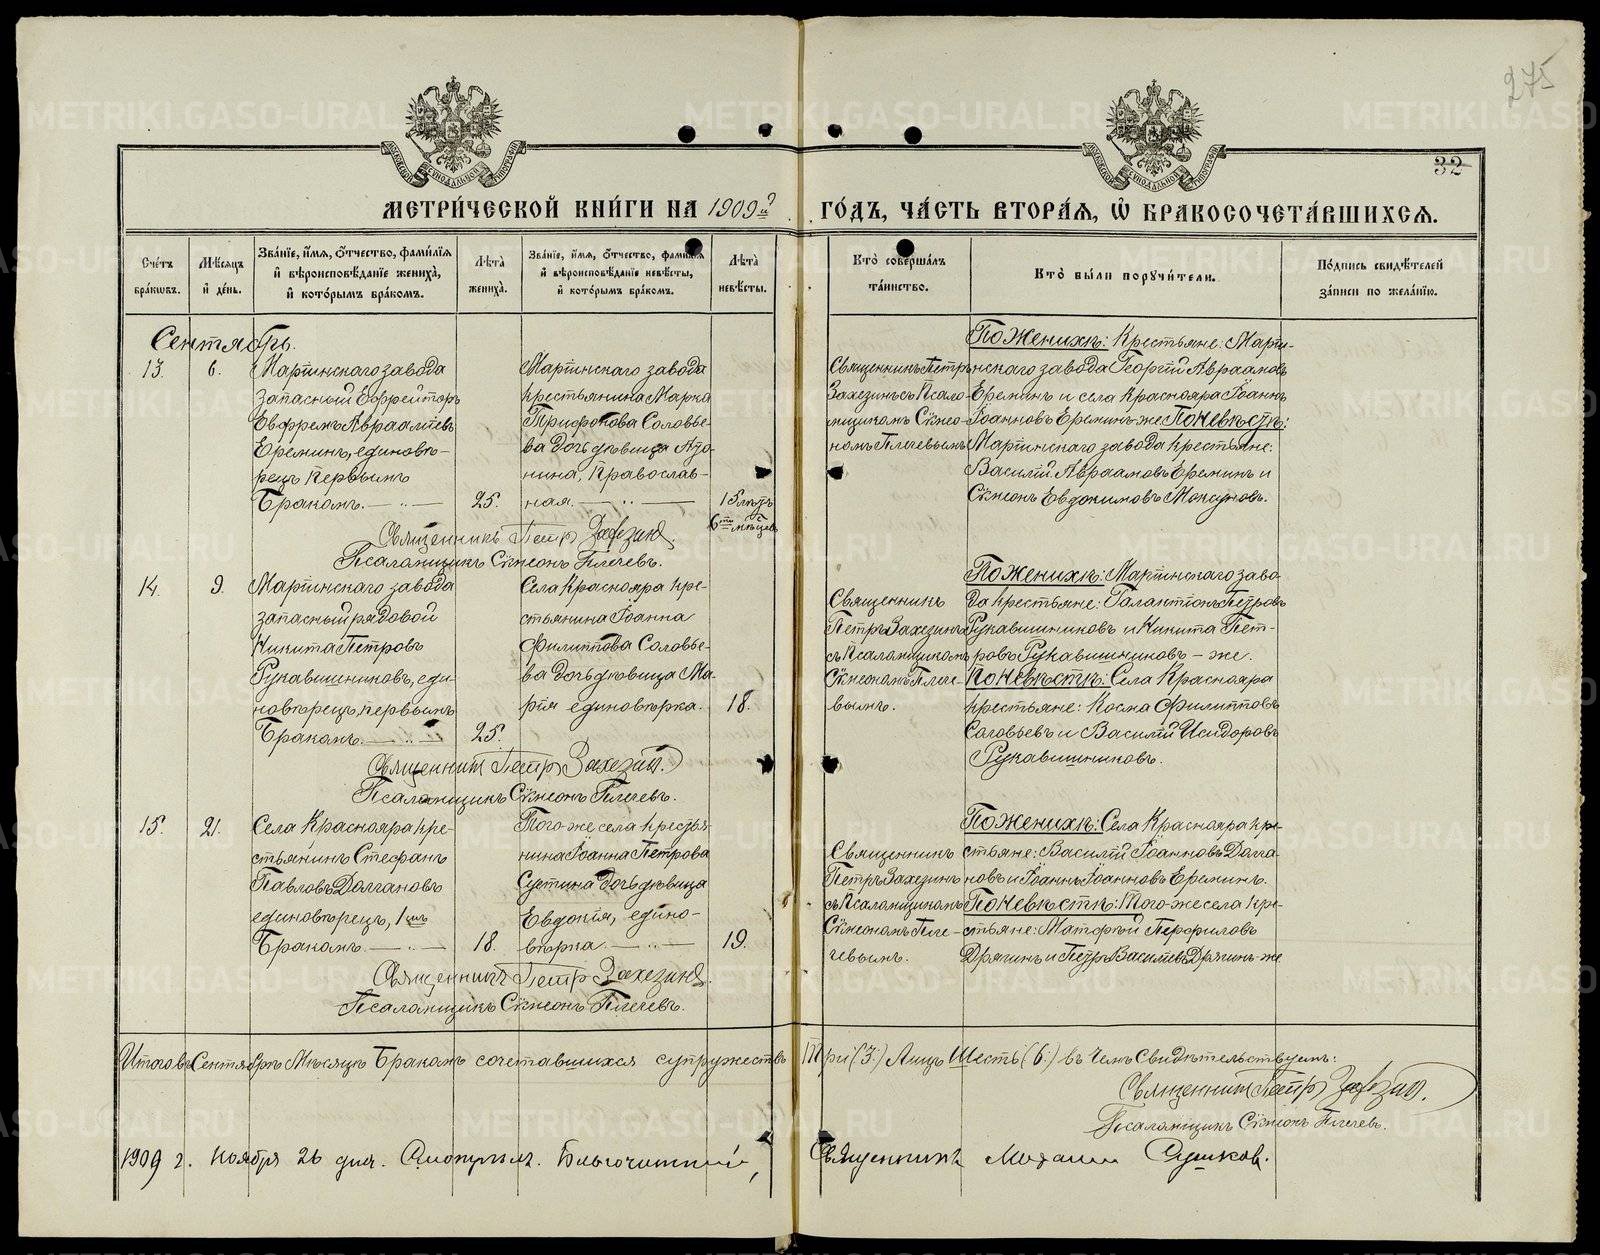 275
32
МЕТРИ́ЧЕСКОЙ КНИ́ГИ НА 1909й
ГО́ДЪ, ЧА́СТЬ ВТОРА́Я, Ѡ҆ БРАКОСОЧЕТА́ВШИХСЯ.
Сче́тъ бра́кѡвъ.
Мѣ́сяцъ и҆ де́нь.
Зва́нїе, и҆́мя, ѻ҆́тчество, фами́лїя и҆ вѣроисповѣ́данїе жениха̀, и҆ кото́рымъ бра́комъ.
Лѣ́та жениха̀.
Зва́нїе, и҆́мя, ѻ҆́тчество, фами́лїя и҆ вѣроисповѣ́данїе невѣ́сты, и҆ кото́рымъ бра́комъ.
Лѣ́та невѣ́сты.
Кто̀ соверша́лъ та́инство.
Кто̀ бы́ли поручи́тели.
По́дпись свидѣ́телей за́писи по жела́нїю.
Сентябрь.
13.
6.
Мартинскаго завода
запасный Ефрейторъ
Евфремъ Авраамiевъ
Ереминъ, единовѣ-
рецъ первымъ
Бракомъ.
25.
Мартинскаго завода
крестьянина Марка
Трифонова Соловье-
ва дочь дѣвица Анто-
нина, Православ-
ная.
15 лѣтъ
6ти мѣсцев
Священникъ Петръ
Захезинъ съ Псало-
мщикомъ Сѵмео-
номъ Плечевымъ.
По Женихѣ: Крестьяне: Марти-
нскаго завода Георгiй Авраамовъ
Ереминъ и села Краснояра Iоаннъ
Iоанновъ Ереминъ-же По Невѣстѣ:
Мартинскаго завода крестьяне:
Василiй Авраамовъ Ереминъ и
Сѵмеонъ Евдокимовъ Мокшуновъ.
Священникъ Петръ Захезинъ.
Псаломщикъ Сѵмеонъ Плечевъ.
14.
9.
Мартинскаго завода
запасный рядовой
Никита Петровъ
Рукавишниковъ, еди-
новѣрецъ, первымъ
Бракомъ.
25.
Села Краснояра кре-
стьянина Iоанна
Филиппова Соловье-
ва дочь дѣвица Ма-
рiя единовѣрка.
18.
Священникъ
Петръ Захезинъ
съ Псаломщикомъ
Сѵмеономъ Плече-
вымъ.
По Женихѣ: Мартинскаго заво-
да крестьяне: Галактiонъ Петровъ
Рукавишниковъ и Никита Пет-
ровъ Рукавишниковъ - же.
По Невѣстѣ: Села Краснояра
крестьяне: Косма Филипповъ
Соловьевъ и Василiй Исидоровъ
Рукавишниковъ.
Священникъ Петръ Захезинъ.
Псаломщикъ Сѵмеонъ Плечевъ.
15.
21.
Села Краснояра кре-
стьянинъ Стефанъ
Павловъ Долгановъ
единовѣрецъ, 1ымъ
Бракомъ.
18.
Того-же села крестья-
нина Iоанна Петрова
Сустина дочь дѣвица
Евдокiя, едино-
вѣрка.
19.
Священникъ
Петръ Захезинъ
съ Псаломщикомъ
Сѵмеономъ Пле-
чевымъ.
По Женихѣ: Села Краснояра кре-
стьяне: Василiй Iоанновъ Долга-
новъ и Iоаннъ Iоанновъ Ереминъ.
По Невѣстѣ: Того-же села кре-
стьяне: Матөей Перфиловъ
Дрягинъ и Петръ Васильевъ Дрягинъ-же
Священникъ Петръ Захезинъ.
Псаломщикъ Сѵмеонъ Плечевъ.
Итого въ Сентябрѣ Мѣсяцѣ Бракомъ сочетавшихся супружествъ Три (3.) Лицъ Шесть (6.) въ чемъ Свидѣтельствуемъ:
Священникъ Петръ Захезинъ.
Псаломщикъ Сѵмеонъ Плечевъ.
1909 г. Ноября 26 дня. Смотрѣлъ. Благочинный, Священникъ Сушков.
METRIKI.GASO-URAL.RU